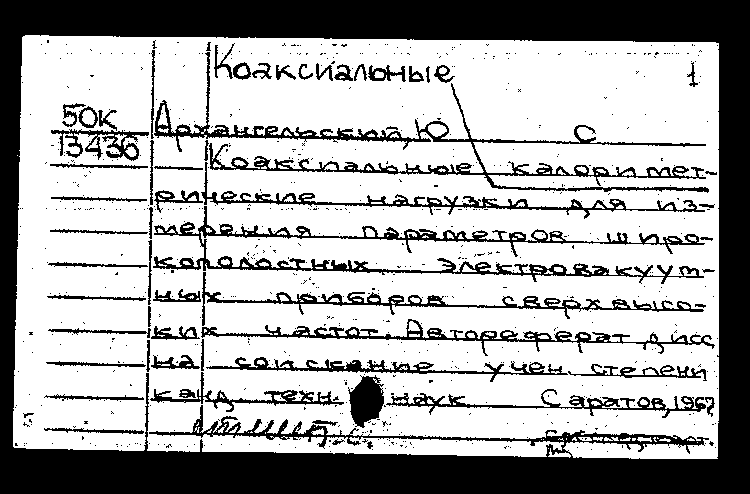 Коаксиальные 1
50К Архангельский, Ю С
13436 Коаксиальные калоримет-
рические нагрузки для из-
мерения параметров широ-
кополостных электровакуум-
ных приборов сверхвысо-
ких частот. Автореферат дисс
на соискание учен. степени
канд техн. наук Саратов, 1967